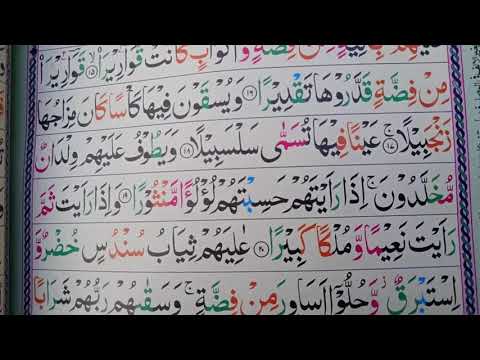 عَلَيْهِمْ بِاٰنِيَةٍ مِّنْ فِضَّةٍ وَّاَكْوَابٍ كَانَتْ قَوَارِيْرَا۠ ﴿۱۵﴾ قَوَارِيْرَا۠
مِنْ فِضَّةٍ قَدَّرُوْهَا تَقْدِيْرًا ﴿۱۶﴾ وَيُسْقَوْنَ فِيْهَا كَاْسًا كَانَ مِزَاجُهَا
زَنْجَبِيْلًا ۚ ﴿۱۷﴾ عَيْنًا فِيْهَا تُسَمّٰى سَلْسَبِيْلًا ﴿۱۸﴾ وَيَطُوْفُ عَلَيْهِمْ وِلْدَانٌ
مُّخَلَّدُوْنَ ۚ اِذَا رَاَيْتَهُمْ حَسِبْتَهُمْ لُؤْلُؤًا مَّنْثُوْرًا ﴿۱۹﴾ وَاِذَا رَاَيْتَ ثَمَّ
رَاَيْتَ نَعِيْمًا وَّمُلْكًا كَبِيْرًا ﴿۲۰﴾ عٰلِيَهُمْ ثِيَابُ سُنْدُسٍ خُضْرٌ وَّ
اِسْتَبْرَقٌ ؗ وَّحُلُّوْۤا اَسَاوِرَ مِنْ فِضَّةٍ ۚ وَسَقٰىهُمْ رَبُّهُمْ شَرَابًا